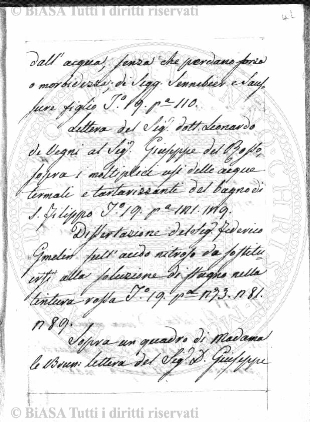 © BiASA Tutti i diritti riservati
dall'acqua, senza che perdano forza
o morbidezza; di Sigg. Sennebier e Saus,
sure figlio T.º 19. p.ª 110.
Lettera del Sig.r dott. Leonardo
de Vegni al Sig.r Giuseppe del Rosso,
sopra i moltiplici usi delle acque
termali e tartarizzante del bagno di
S. Filippo T.º 19. p.ª
Dissertazione del Sig.r Federico
Gmelin sull'acido nitroso da sostitu
irsi alla soluzione di stagno nella
tentura rossa T.º 19. p.ª n.73. n.81.
n.89.
Sopra un quadro di Madama
le Brun: lettera del Sig.r D. Giuseppe
© BiASA Tutti i diritti riservati